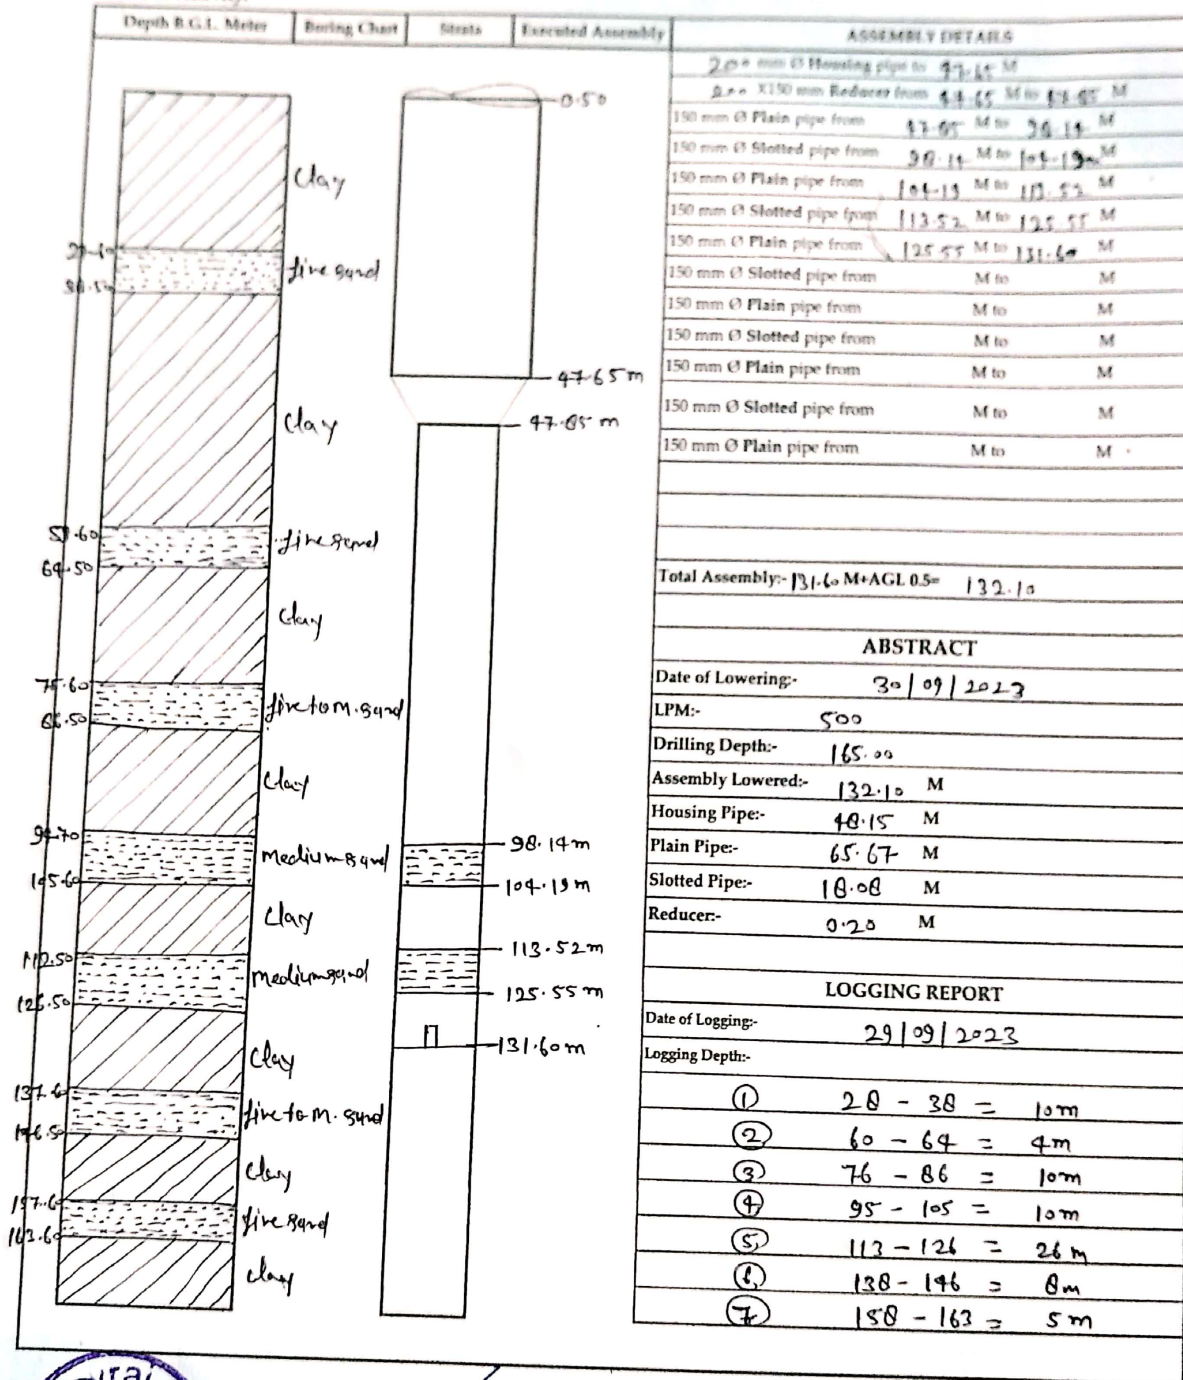 Depth B.G.L. Meter
Boring Chart
Strata
Executed Assembly
Clay
fine sand
38.50
Clay
59.60
fine sand
64.50
Clay
75.60
fine to m. sand
86.50
Clay
94.70
medium sand
105.60
Clay
112.50
medium sand
126.50
Clay
137.6
fine to m. sand
146.5
Clay
157.6
fine sand
163.60
clay
0.50
47.65m
47.85 m
98.14m
104.19m
113.52m
125.55m
131.60m
ASSEMBLY DETAILS
200 mm Ø Housing pipe to 47.65 M
200 X150 mm Reducer from 47.65 M to 47.85 M
150 mm Ø Plain pipe from 47.85 M to 98.14 M
150 mm Ø Slotted pipe from 98.14 M to 104.19 M
150 mm Ø Plain pipe from 104.19 M to 113.52 M
150 mm Ø Slotted pipe from 113.52 M to 125.55 M
150 mm Ø Plain pipe from 125.55 M to 131.60 M
150 mm Ø Slotted pipe from M to M
150 mm Ø Plain pipe from M to M
150 mm Ø Slotted pipe from M to M
150 mm Ø Plain pipe from M to M
150 mm Ø Slotted pipe from M to M
150 mm Ø Plain pipe from M to M
Total Assembly:- 131.60 M+AGL 0.5= 132.10
ABSTRACT
Date of Lowering:- 30/09/2023
LPM:- 500
Drilling Depth:- 165.00
Assembly Lowered:- 132.10 M
Housing Pipe:- 48.15 M
Plain Pipe:- 65.67 M
Slotted Pipe:- 18.08 M
Reducer:- 0.20 M
LOGGING REPORT
Date of Logging:- 29/09/2023
Logging Depth:-
① 28 - 38 = 10m
② 60 - 64 = 4m
③ 76 - 86 = 10m
④ 95 - 105 = 10m
⑤ 113 - 126 = 26m
⑥ 138 - 146 = 8m
⑦ 158 - 163 = 5m